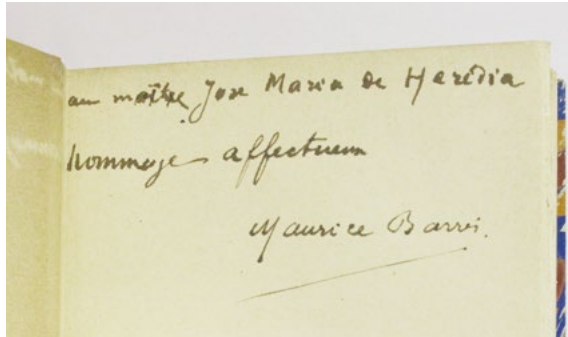 au maître Jose Maria de Harédia
hommage affectueux
Maurice Barrès.